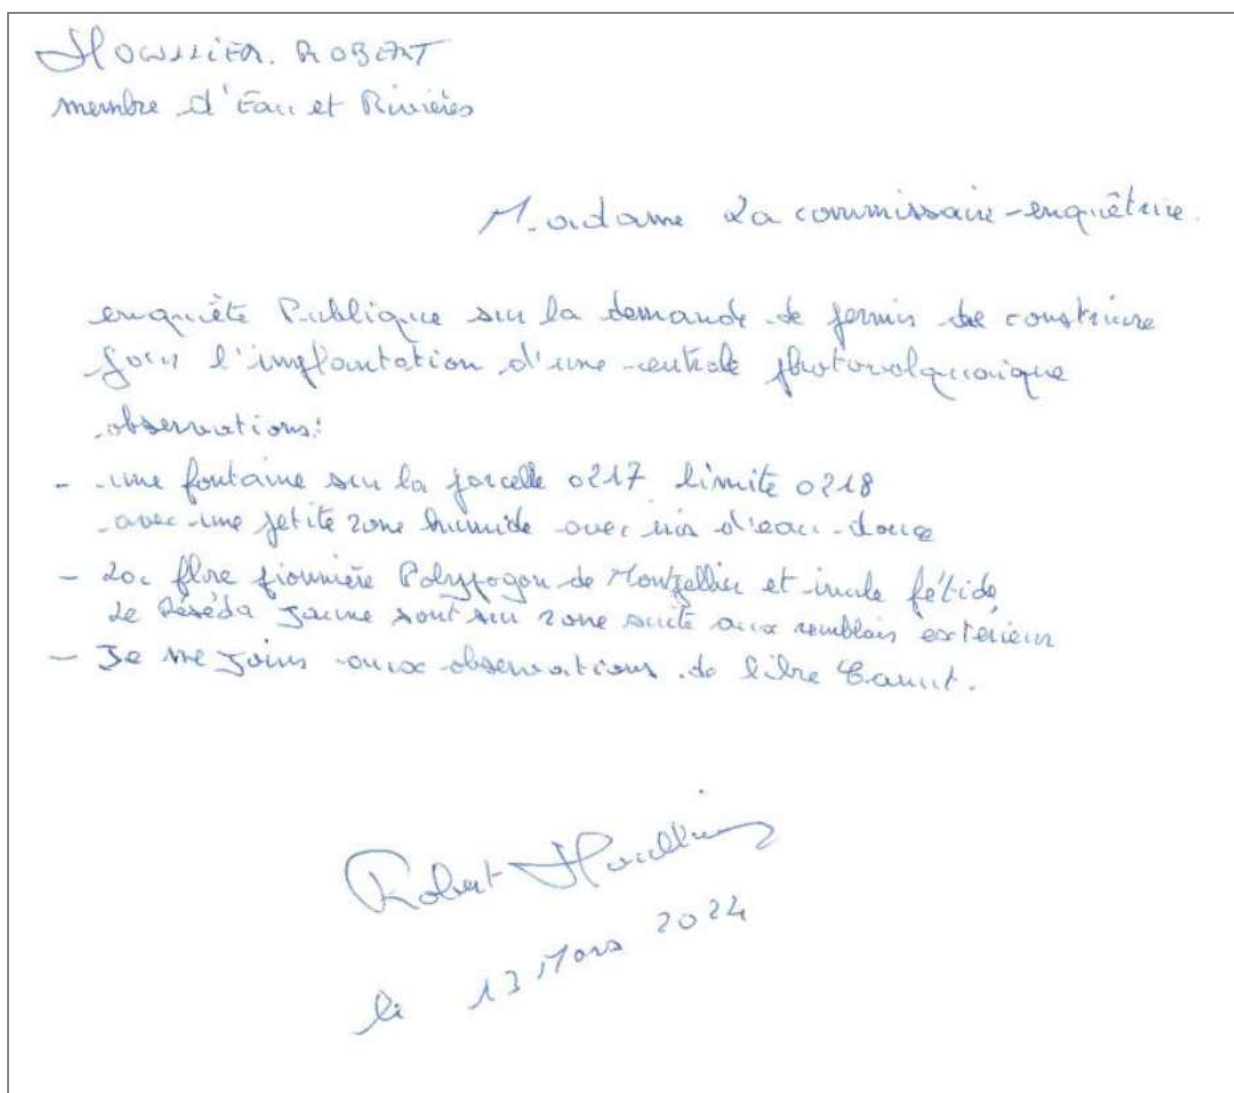 ROBERT
membre d'Eau et Rivières
Madame La commissaire-enquêtrice.
enquète Publique sur la demande de permis de construire
pour l'implantation d'une centrale photovolquaique
observations:
- une fontaine sur la parcelle 0217 limite 0218
avec une petite zone humide avec d'eau douce
- La flore pionnière Polypogon de Montpellier et inule fétide,
Le Réséda Jaune sont sur zone suite aux remblais extérieur
- Je me Joins aux observations de libre Canut.
Robert
le 13 Mars 2024